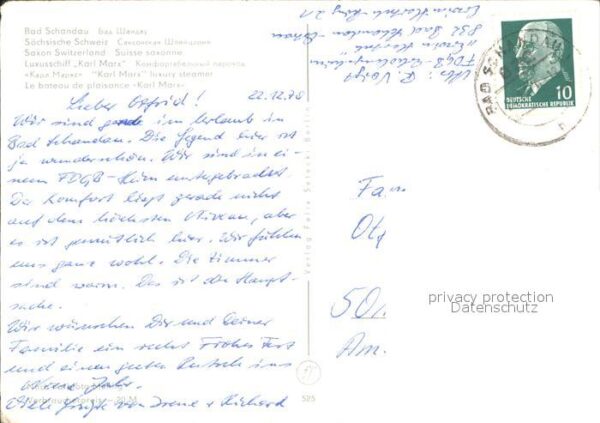 Bad Schandau Бад Шандау
Sächsische Schweiz Саксонская Швейцария
Saxon Switzerland Suisse saxonne
Luxusschiff „Karl Marx“ Комфортабельный пароход
«Карл Маркс» “Karl Marx” luxury steamer
Le bateau de plaisance «Karl Marx»
22.12.70
Lieber Otfrid!
Wir sind grade im Urlaub in
Bad Schandau. Die Gegend hier ist
ja wunderschön. Wir sind in ei-
nem FDGB-Heim untergebracht
Der Komfort liegt gerade nicht
auf dem höchsten Niveau, aber
es ist gemütlich hier. Wir fühlen
uns ganz wohl. Die Zimmer
sind warm. Das ist die Haupt-
sache.
Wir wünschen Dir und Deiner
Familie ein recht Frohes Fest
und einen guten Rutsch ins
Neue Jahr.
Viele Grüße von Irene + Richard
Verlag Felix Setecki Berlin
525
Abs.: R. Voigt
FDGB-Erholungsheim
832 Bad Schandau
DEUTSCHE
DEMOKRATISCHE REPUBLIK
10
BAD SCHANDAU
Fam
Otf
501
Am.
privacy protection
Datenschutz